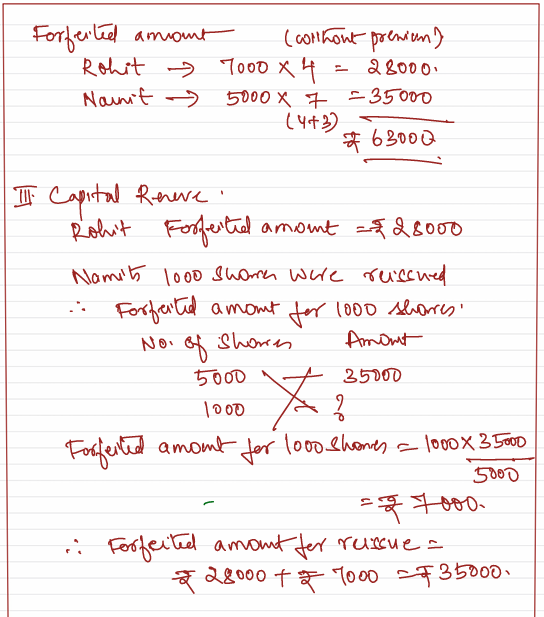 Forfeited amount (without premium)
Rohit → 7000 × 4 = 28000.
Namit → 5000 × 7 = 35000
(4+3)
₹ 63000
III. Capital Reserve.
Rohit Forfeited amount = ₹ 28000
Namit's 1000 shares were reissued
∴ Forfeited amount for 1000 shares.
No. of Shares Amount
5000 — 35000
1000 — ?
Forfeited amount for 1000 Shares = 1000 × 35000
5000
= ₹ 7000.
∴ Forfeited amount for reissue =
₹ 28000 + ₹ 7000 = ₹ 35000.